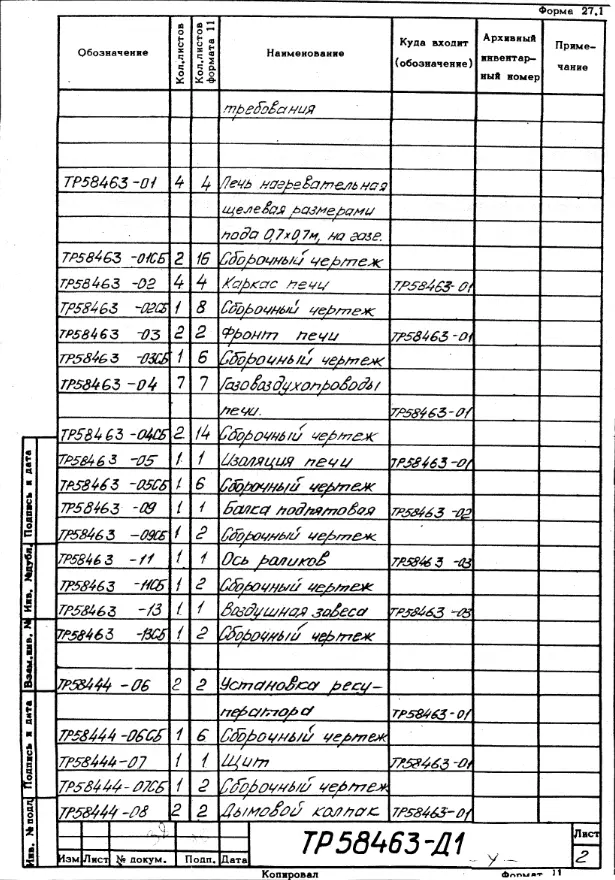 Форма 27.1
Обозначение Кол.листов Кол.листов формата 11 Наименование Куда входит (обозначение) Архивный инвентарный номер Примечание
требования
ТР58463-01 4 4 Печь нагревательная
щелевая размерами
пода 0,7х0,7м, на газе.
ТР58463-01СБ 2 16 Сборочный чертеж
ТР58463-02 4 4 Каркас печи ТР58463-01
ТР58463-02СБ 1 8 Сборочный чертеж
ТР58463-03 2 2 Фронт печи ТР58463-01
ТР58463-03СБ 1 6 Сборочный чертеж
ТР58463-04 7 7 Газовоздухопроводы
печи. ТР58463-01
ТР58463-04СБ 2 14 Сборочный чертеж
ТР58463-05 1 1 Изоляция печи ТР58463-01
ТР58463-05СБ 1 6 Сборочный чертеж
ТР58463-09 1 1 Балка подпятовая ТР58463-02
ТР58463-09СБ 1 2 Сборочный чертеж
ТР58463-11 1 1 Ось роликов ТР58463-03
ТР58463-11СБ 1 2 Сборочный чертеж
ТР58463-13 1 1 Воздушная завеса ТР58463-03
ТР58463-13СБ 1 2 Сборочный чертеж
ТР58444-06 2 2 Установка реку-
ператора ТР58463-01
ТР58444-06СБ 1 6 Сборочный чертеж
ТР58444-07 1 1 Щит ТР58463-01
ТР58444-07СБ 1 2 Сборочный чертеж
ТР58444-08 2 2 Дымовой колпак ТР58463-01
Инв. № подл. Подпись и дата Взам. инв. № Инв. № дубл. Подпись и дата
Изм Лист № докум. Подп. Дата
ТР58463-Д1
Лист
2
Копировал Формат 11